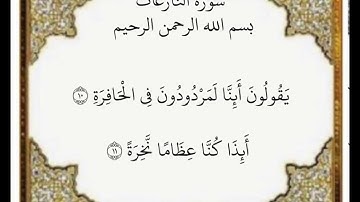 سورة النازعات
بسم الله الرحمن الرحيم
يَقُولُونَ أَئِنَّا لَمَرْدُودُونَ فِى الْحَافِرَةِ ۝١٠
أَئِذَا كُنَّا عِظَامًا نَّخِرَةً ۝١١